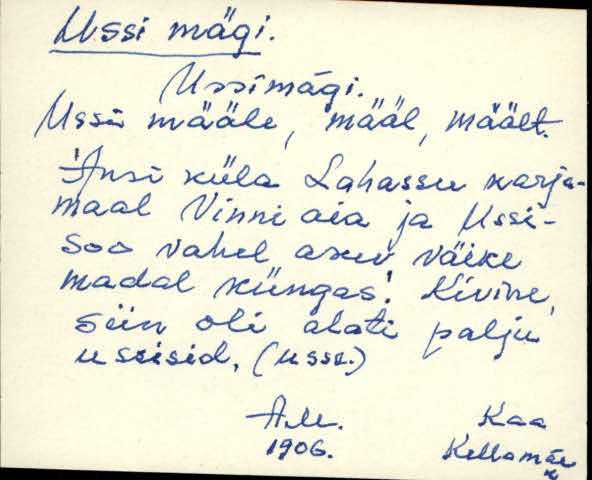 Ussi mägi.
Ussimägi.
Ussi määle, määl, mäält.
Ansi küla Lahassu karja-
maal Vinni aia ja Ussi-
soo vahel asuv väike
madal küngas. Kivine,
siin oli alati palju
ussisid. (uss.)
A.M. Kaa
1906. Kellamäe
k